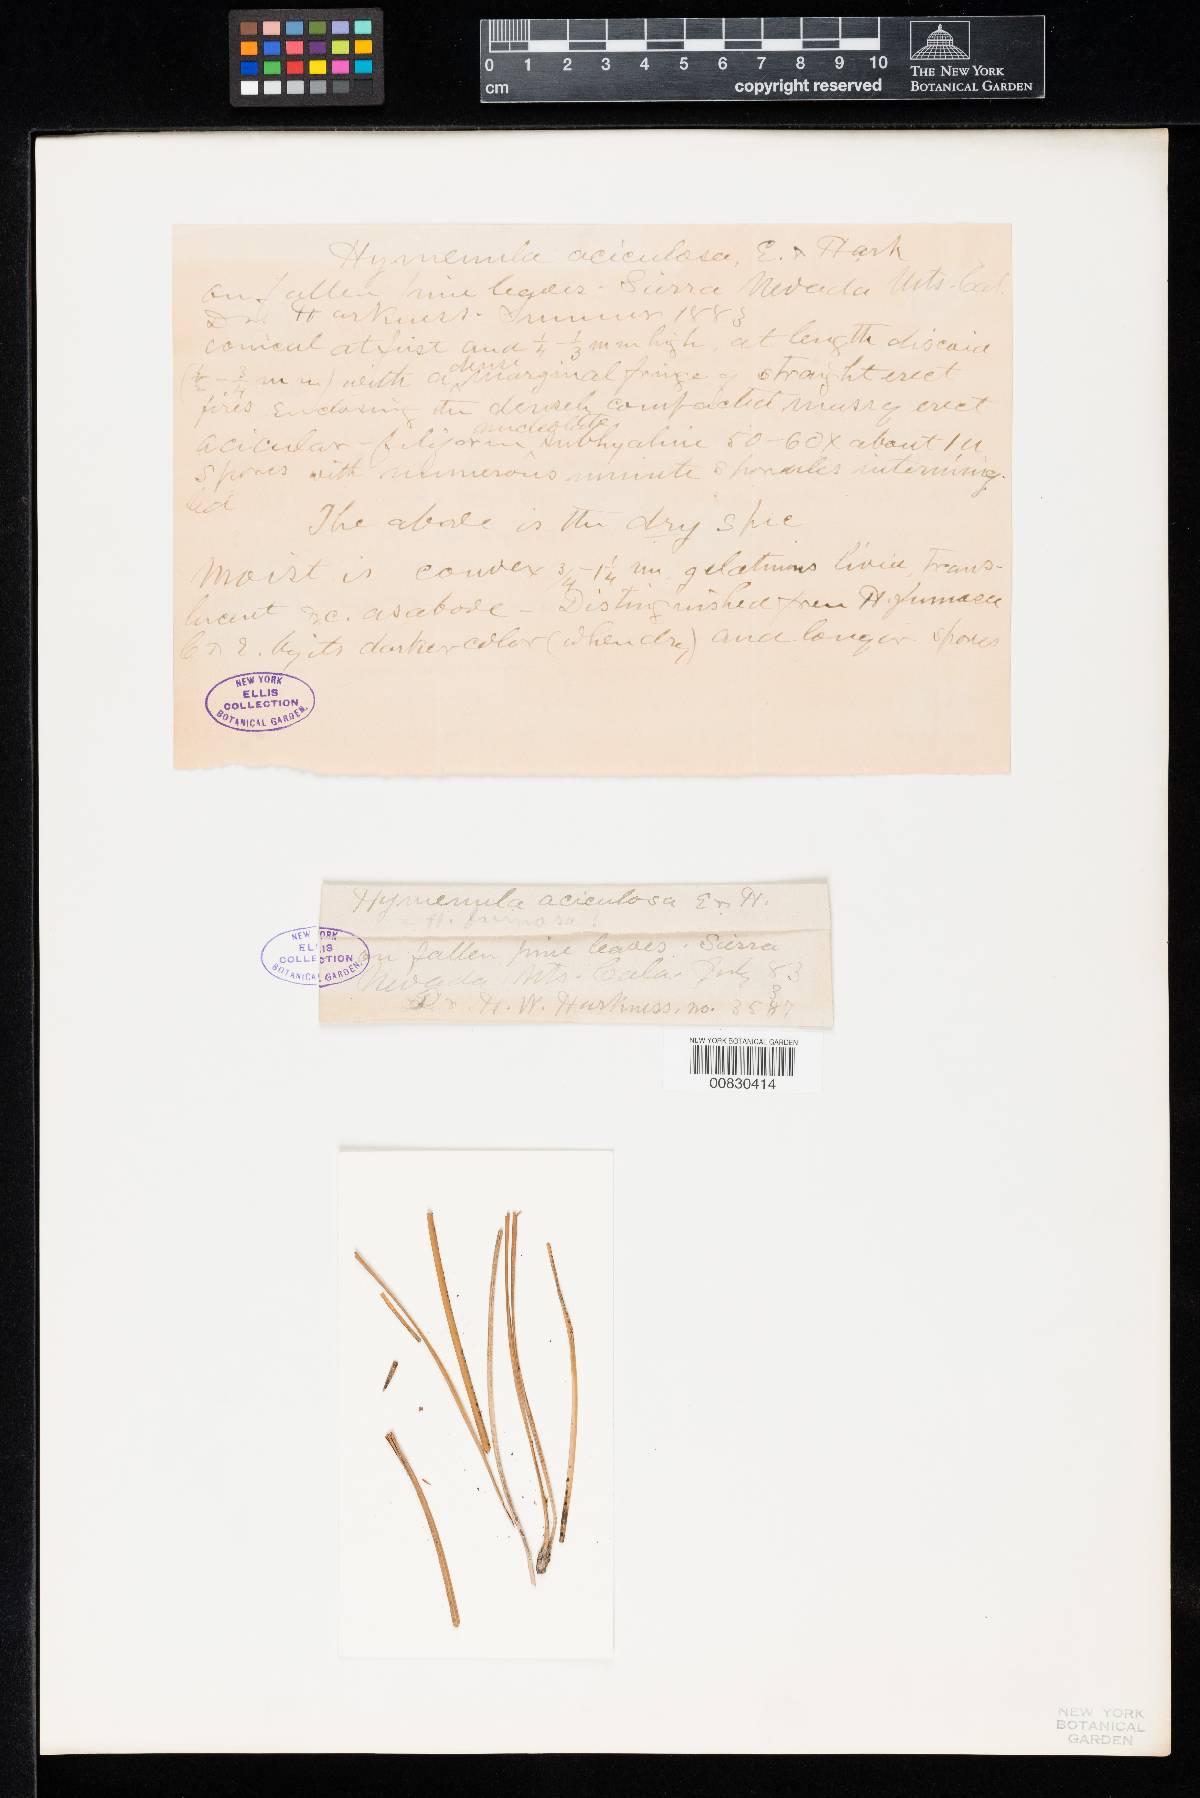 0 1 2 3 4 5 6 7 8 9 10
cm
copyright reserved
THE NEW YORK
BOTANICAL GARDEN
Hymenula aciculosa, E. & Hark
on fallen pine leaves - Sierra Nevada Mts. Cal.
Dr. Harkness. Summer 1883
conical at first and ¼-⅓ mm high, at length discoid
(½-¾ mm) with a dense marginal fringe of straight erect
enclosing the densely compacted mass of erect
acicular-filiform nucleolate subhyaline 50-60 X about 1 u
spores with numerous minute sporules interming-
led
The above is the dry spec
Moist is convex ¾-1¼ mm gelatinous livid, trans-
lucent &c. as above - Distinguished from H. fumosa
C & E. by its darker color (when dry) and longer spores
NEW YORK
ELLIS
COLLECTION
BOTANICAL GARDEN.
Hymenula aciculosa E & H.
H. fumosa?
NEW YORK
ELLIS
COLLECTION
BOTANICAL GARDEN.
on fallen pine leaves. Sierra
Nevada Mts. Cala. July 83
Dr. H. W. Harkness. no.
NEW YORK BOTANICAL GARDEN
00830414
NEW YORK
BOTANICAL
GARDEN